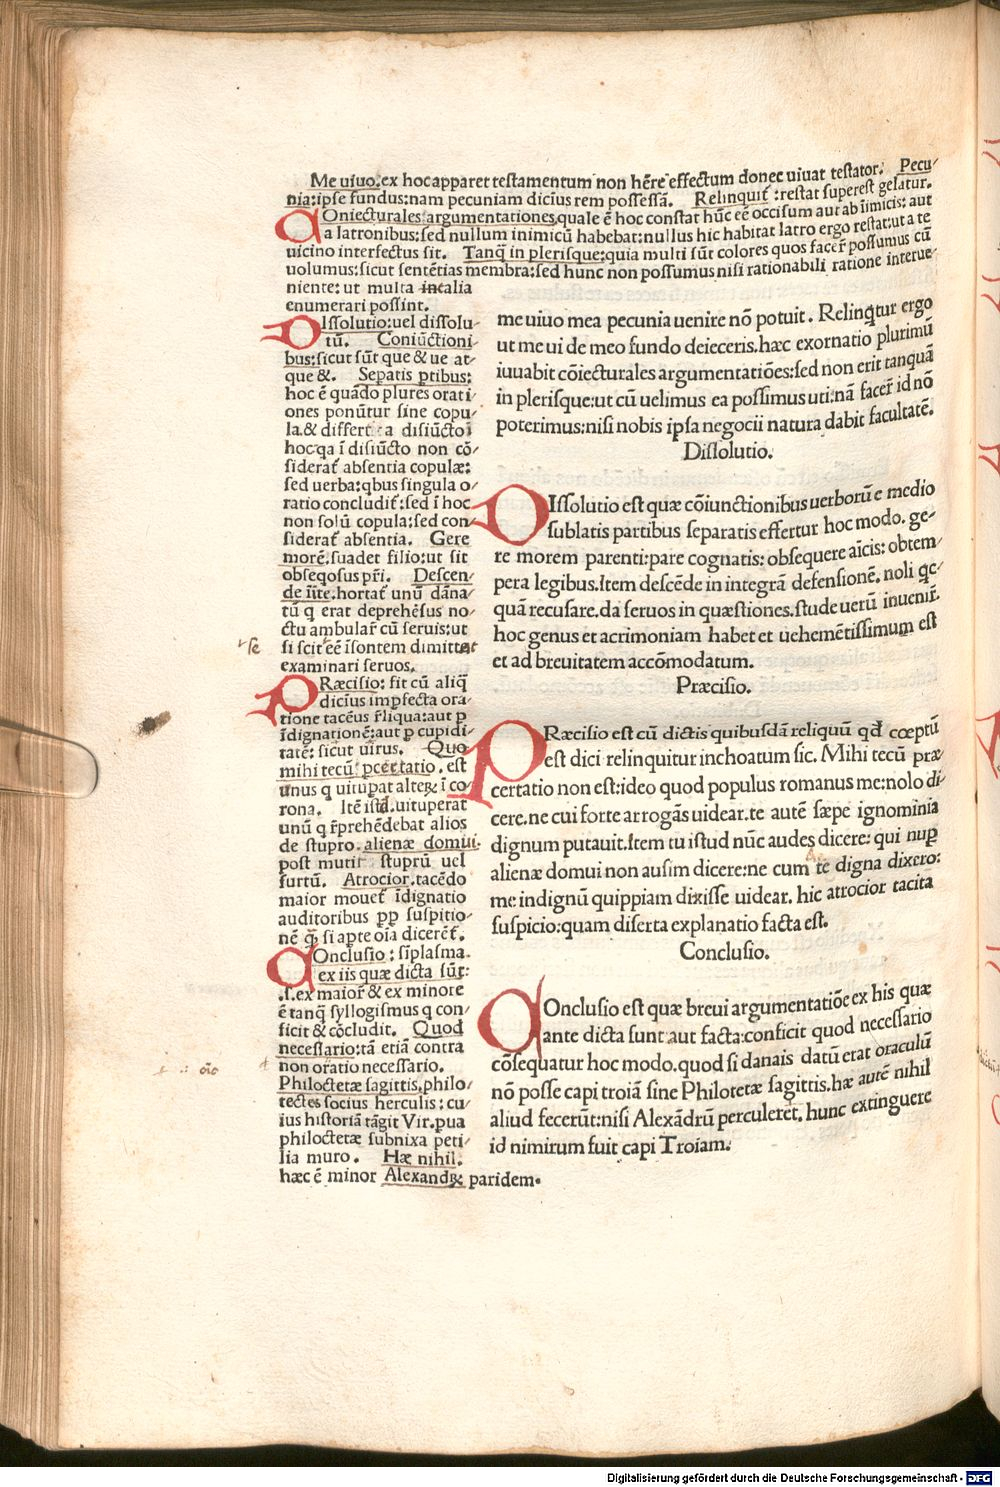 Me uiuo.ex hoc apparet testamentum non hēre effectum donec uiuat testator. Pecu⸗
nia:ipse fundus:nam pecuniam dicius rem possessā. Relinquit̄ :restat superest gelatur.
COniecturales argumentationes,quale ē hoc constat hūc eē occisum aut ab īimicis: aut
a latronibus:sed nullum inimicū habebat:nullus hic habitat latro ergo restat:ut a te
uicino interfectus sit. Tanq̄ in plerisque:quia multi sūt colores quos facer̄ possumus cū
uolumus:sicut sentētias membra:sed hunc non possumus nisi rationabili ratione interue⸗
niente: ut multa intalia
enumerari possint.
DIssolutio:uel dissolu⸗
tū. Coniūctioni
bus:sicut sūt que & ue at⸗
que &. Sepatis ptibus:
hoc ē quādo plures orati⸗
ones ponūtur sine copu⸗
la.& differt a disiūcto:
hoc:qa ī disiūcto non cō⸗
siderat̄ absentia copulæ:
sed uerba:qbus singula o⸗
ratio concludit̄ :sed ī hoc
non solū copula:sed con⸗
siderat̄ absentia. Gere
morē.suadet filio:ut sit
obseqosus pr̄i. Descen⸗
de īite.hortat̄ unū dāna⸗
tū q erat deprehēsus no⸗
ctu ambular̄ cū seruis:ut
si scit eē īsontem dimittat
examinari seruos.
⸗se
PRæcisio: fit cū aliq̄
dicius impfecta ora⸗
tione tacēus r̄liqua:aut p
īdignationē:aut p cupidi⸗
tatē: sicut uirus. Quo
mihi tecū: pcertatio. est
unus q uitupat alteꝝ ī co⸗
rona. Itē istd.uituperat
unū q r̄prehēdebat alios
de stupro. alienæ domui.
post mutir̄ stuprū uel
furtū. Atrocior.tacēdo
maior mouet̄ īdignatio
auditoribus pp suspitio⸗
nē q̄ si apte oīa dicerēt̄.
COnclusio : sīplasma.
ex iis quæ dicta sūt:
.s.ex maior̄ & ex minore
ē tanq̄ syllogismus q con⸗
ficit & cōcludit. Quod
necessario:tā etiā contra
non oratio necessario.
oīo
Philoctetæ sagittis.philo⸗
tectes socius herculis : cu⸗
ius historiā tāgit Vir.pua
philoctetæ subnixa peti⸗
lia muro. Hæ nihil.
hæc ē minor Alexandꝝ paridem.
me uiuo mea pecunia uenire nō potuit. Relinq̄tur ergo
ut me ui de meo fundo deieceris.hæc exornatio plurimū
iuuabit cōiecturales argumentatiōes:sed non erit tanquā
in plerisque:ut cū uelimus ea possimus uti:nā facer̄ id nō
poterimus:nisi nobis ipsa negocii natura dabit facultatē.
Dissolutio.
DIssolutio est quæ cōiunctionibus uerborū e medio
sublatis partibus separatis effertur hoc modo. ge⸗
re morem parenti:pare cognatis: obsequere aīcis: obtem⸗
pera legibus.Item descēde in integrā defensionē. noli qc⸗
quā recusare.da seruos in quæstiones.stude uerū inuenir̄.
hoc genus et acrimoniam habet et uehemētissimum est
et ad breuitatem accōmodatum.
Præcisio.
PRæcisio est cū dictis quibusdā reliquū qd cœptū
est dici relinquitur inchoatum sic. Mihi tecū præ
certatio non est:ideo quod populus romanus me:nolo di⸗
cere.ne cui forte arrogās uidear.te autē sæpe ignominia
dignum putauit.Item tu istud nūc audes dicere: qui nup
alienæ domui non ausim dicere:ne cum te digna dixero:
me indignū quippiam dixisse uidear. hic atrocior tacita
suspicio:quam diserta explanatio facta est.
Conclusio.
COnclusio est quæ breui argumentatiōe ex his quæ
ante dicta sunt aut facta:conficit quod necessario
cōsequatur hoc modo.quod si danais datū erat oraculū
nō posse capi troiā sine Philotetæ sagittis.hæ autē nihil
aliud fecerūt:nisi Alexādrū perculeret. hunc extinguere
id nimirum fuit capi Troiam.
Digitalisierung gefördert durch die Deutsche Forschungsgemeinschaft - DFG